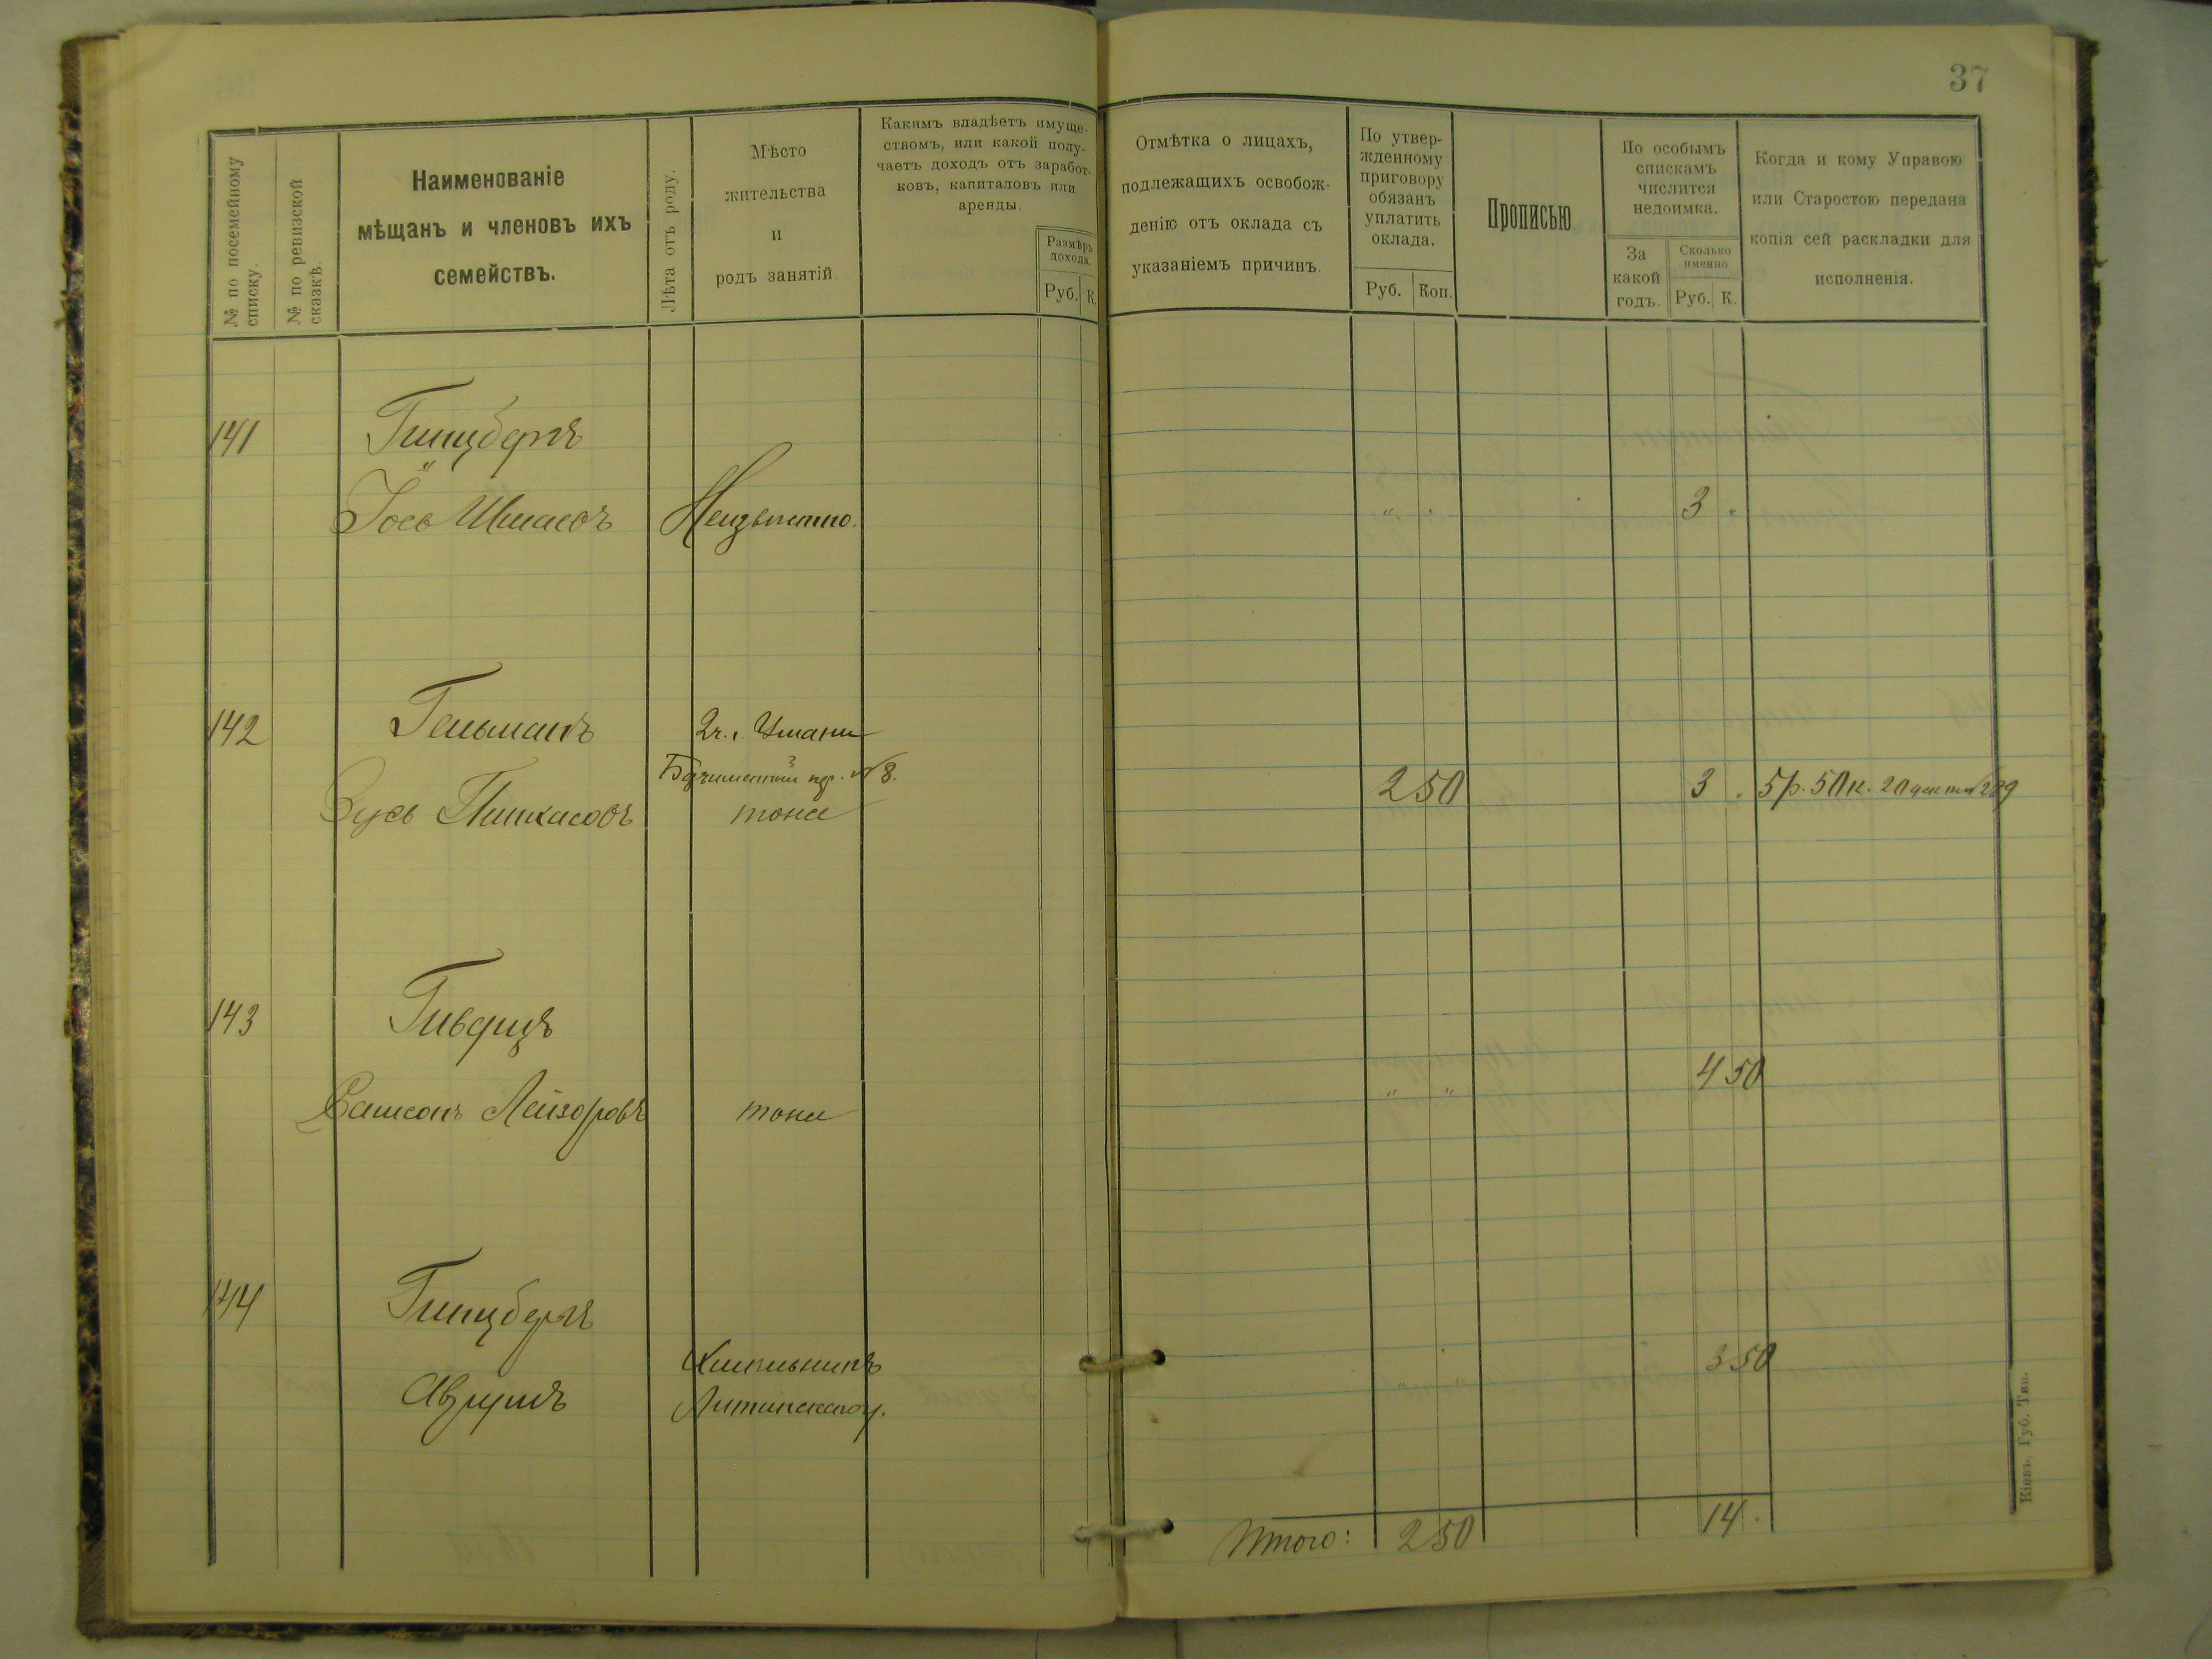 37
№ по посемейному списку.
№ по ревизской сказкѣ.
Наименованіе
мѣщанъ и членовъ ихъ
семействъ.
Лѣта отъ роду.
Мѣсто
жительства
и
родъ занятій.
Какимъ владѣетъ имуще-
ствомъ, или какой полу-
чаетъ доходъ отъ заработ-
ковъ, капиталовъ или
аренды.
Размѣръ
дохода.
Руб. К.
Отмѣтка о лицахъ,
подлежащихъ освобож-
денію отъ оклада съ
указаніемъ причинъ.
По утвер-
жденному
приговору
обязанъ
уплатить
оклада.
Руб. Коп.
Прописью
По особымъ
спискамъ
числится
недоимка.
За
какой
годъ.
Сколько
именно
Руб. К.
Когда и кому Управою
или Старостою передана
копія сей раскладки для
исполненія.
141 Гинцбергъ
Іось Ицковъ Неизвѣстно. " . 3 .
142 Гельманъ г. Умани
№ 8.
Зусь Пинкасовъ тоже 2 50 3 . 5 р. 50 к. 20 289
143 Гиверцъ
Самсонъ Лейзоровъ тоже " " 4 50
144 Гинцбергъ
Хмельникъ
Аврумъ Литинскаго у. " " 3 50
Итого: 2 50 14 .
Кіевъ, Губ. Тип.